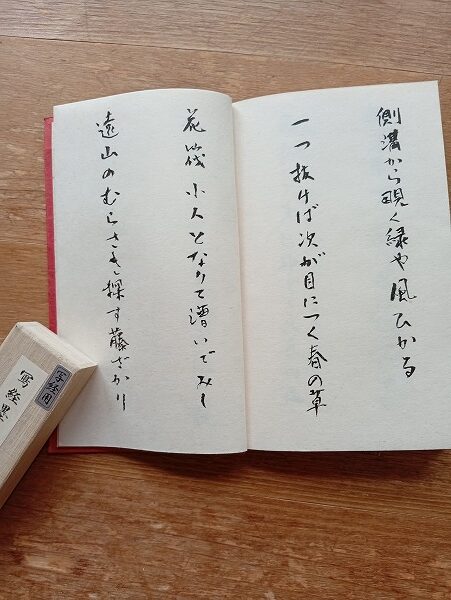 側溝から覗く緑や風ひかる
一つ抜けば次が目につく春の草
花筏小人となりて漕いでみし
遠山のむらさき探す藤ざかり
写経用
写経墨